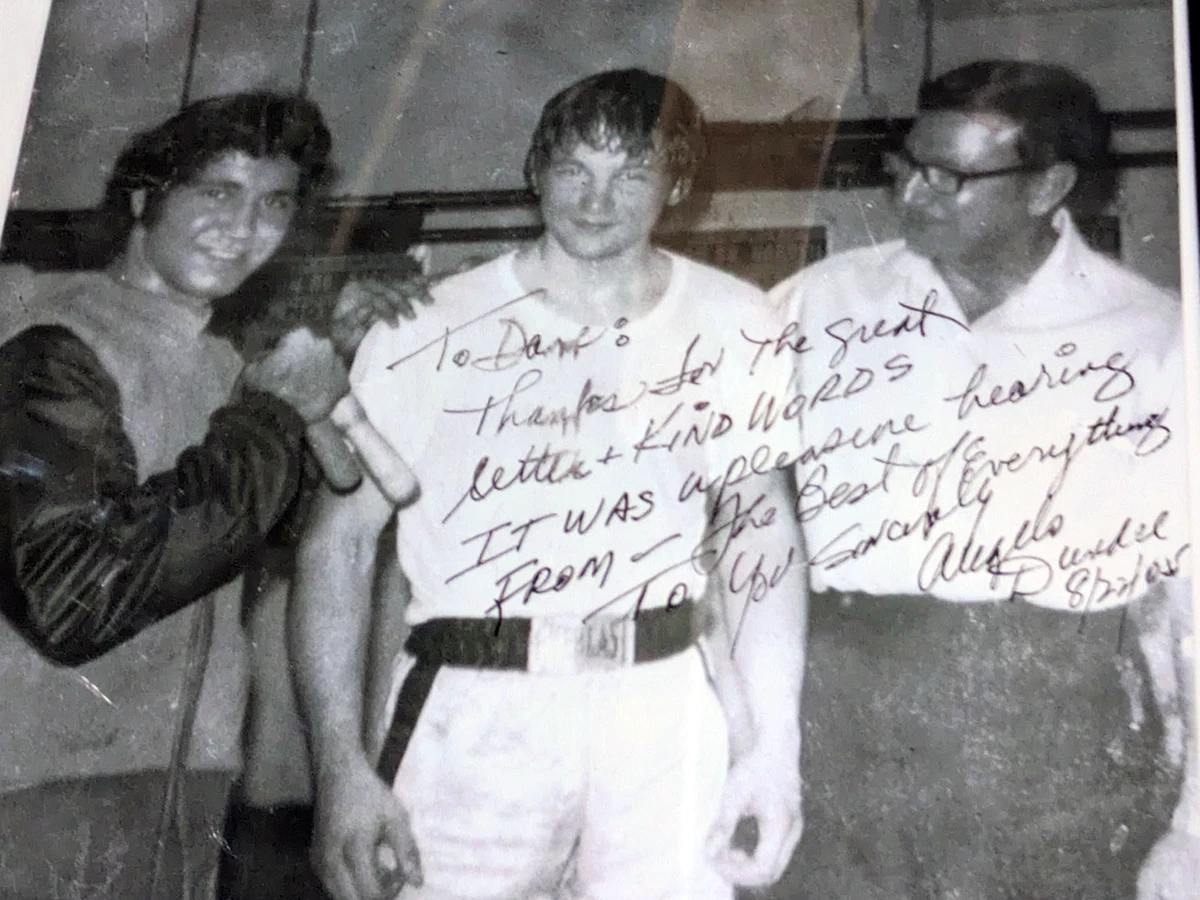 To Dave:
Thanks for the great
letter + KIND WORDS
IT WAS a pleasure hearing
FROM — The Best of Everything
To You Sincerely
Angelo
Dundee
8/22/05